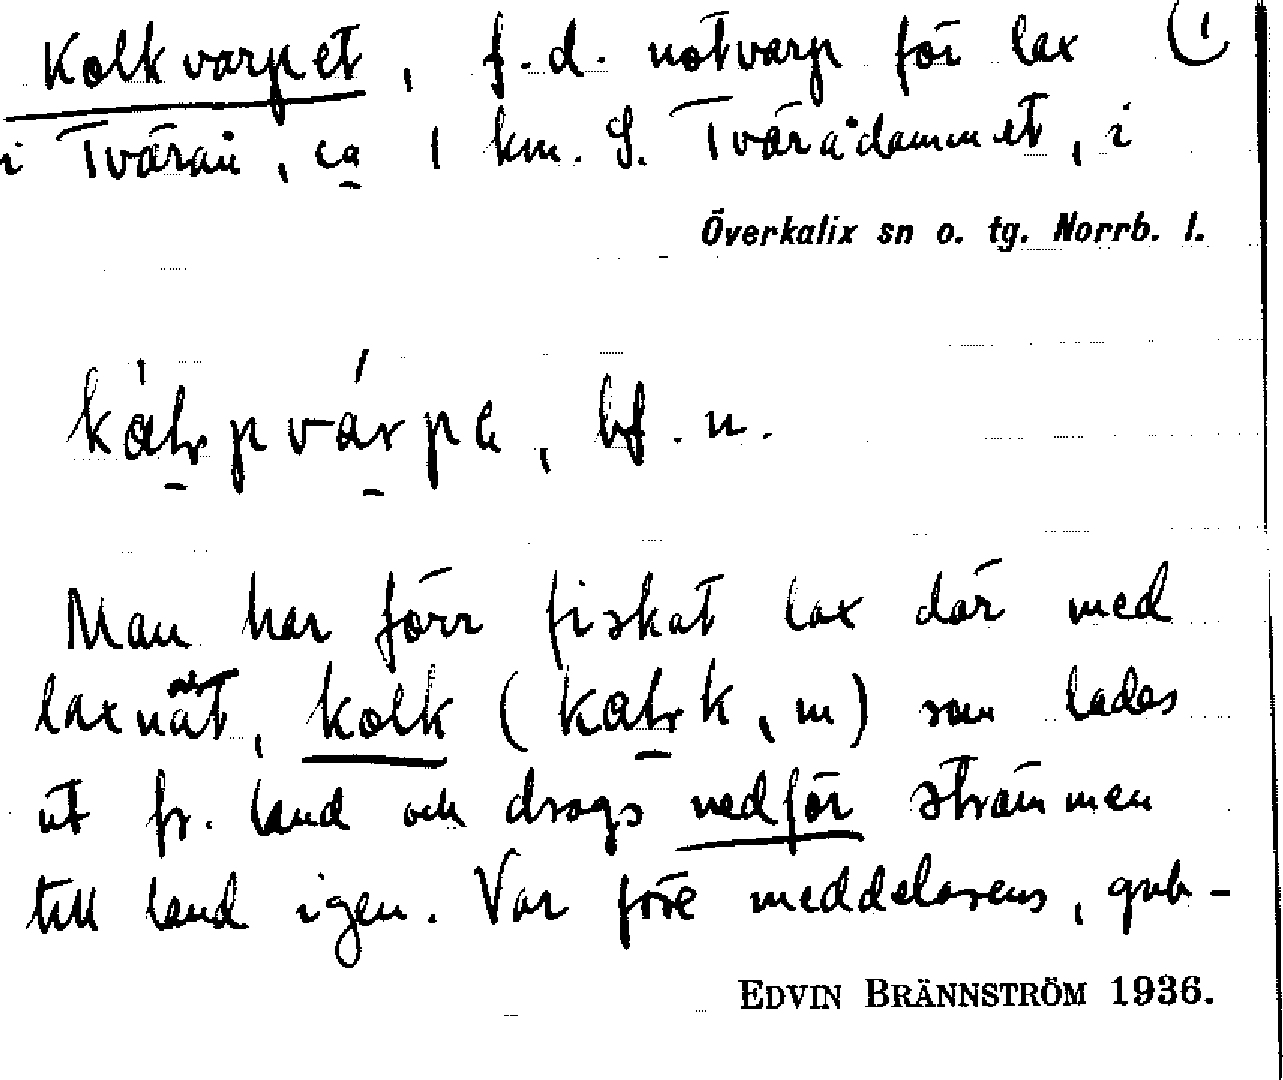 Kolkvarpet, f.d. notvarp för lax (1
i Tvärån, ca 1 km. S. Tvärådammet, i
Överkalix sn o. tg. Norrb. l.
bf. n.
Man har förr fiskat lax där med
laxnät, kolk (m) som lades
ut fr. land och drogs nedför strömmen
till land igen. Var före meddelarens, gub-
EDVIN BRÄNNSTRÖM 1936.